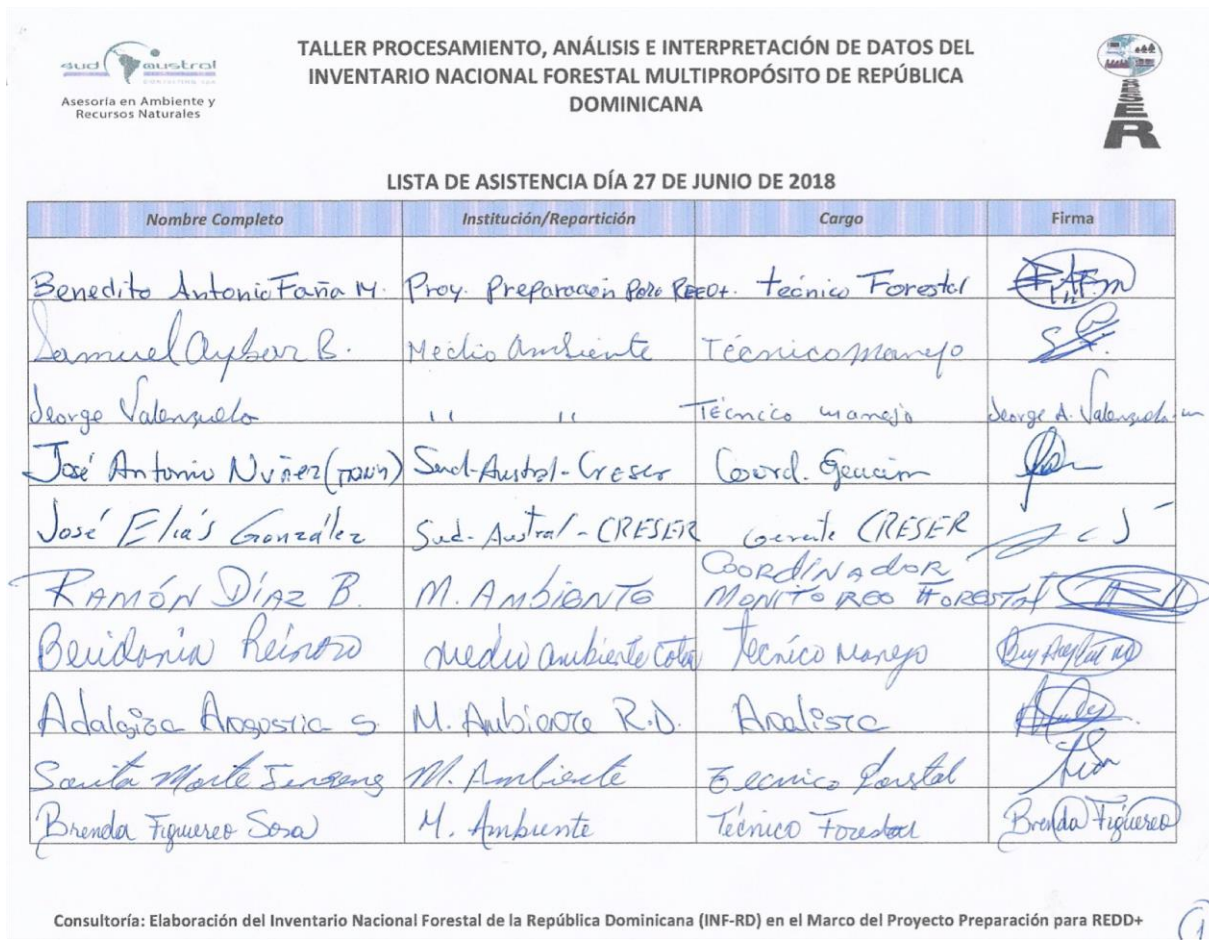 sud austral
CONSULTING SPA
Asesoría en Ambiente y
Recursos Naturales
TALLER PROCESAMIENTO, ANÁLISIS E INTERPRETACIÓN DE DATOS DEL
INVENTARIO NACIONAL FORESTAL MULTIPROPÓSITO DE REPÚBLICA
DOMINICANA
LISTA DE ASISTENCIA DÍA 27 DE JUNIO DE 2018
Nombre Completo Institución/Repartición Cargo Firma
Benedito Antonio Faña M. Proy. Preparación para REED+. técnico Forestal
Samuel Aybar B. Medio Ambiente Técnico manejo
George Valenzuela " " Técnico manejo George A. Valenzuela
José Antonio Nuñez Sud-Austral-Creser Coord.
José Elías González Sud-Austral-CRESER Gerente CRESER
RAMÓN DÍAZ B. M. AMBIENTE COORDINADOR
MONITOREO FORESTAL
Reinoso Medio ambiente Técnico Manejo
Adalgiza M. Ambiente R.D. Analista
M. Ambiente Tecnico forestal
Brenda Figuereo Sosa M. Ambiente Técnico Forestal Brenda Figuereo
Consultoría: Elaboración del Inventario Nacional Forestal de la República Dominicana (INF-RD) en el Marco del Proyecto Preparación para REDD+
1